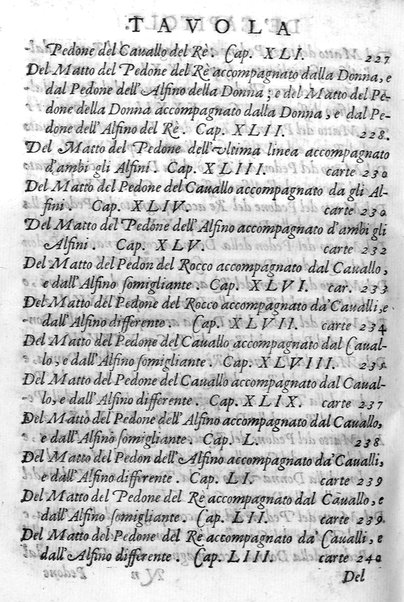 TAVOLA
Pedone del Cauallo del Rè. Cap. XLI. 227
Del Matto del Pedone del Rè accompagnato dalla Donna, e
dal Pedone dell'Alfino della Donna; e del Matto del Pe-
done della Donna accompagnato dalla Donna; e dal Pe-
done dell'Alfino del Rè. Cap. XLII. 228.
Del Matto del Pedone dell'vltima linea accompagnato
d'ambi gli Alfini. Cap. XLIII. carte 230
Del Matto del Pedone del Cauallo accompagnato da gli Al-
fini. Cap. XLIV. carte 230
Del Matto del Pedone dell'Alfino accompagnato d'ambi gli
Alfini. Cap. XLV. carte 232
Del Matto del Pedon del Rocco accompagnato dal Cauallo,
e dall'Alfino somigliante. Cap. XLVI. car. 233
Del Matto del Pedone del Rocco accompagnato da' Caualli, e
dall'Alfino differente. Cap. XLVII. carte 234
Del Matto del Pedone del Cauallo accompagnato dal Caual-
lo, e dall'Alfino somigliante. Cap. XLVIII. carte 236
Del Matto del Pedone del Cauallo accompagnato dal Caual-
lo, e dall'Alfino differente. Cap. XLIX. carte 237
Del Matto del Pedone dell'Alfino accompagnato dal Cauallo,
e dall'Alfino somigliante. Cap. L. carte 238.
Del Matto del Pedon dell'Alfino accompagnato da' Caualli,
e dall'Alfino differente. Cap. LI. carte 239
Del Matto del Pedone del Rè accompagnato dal Cauallo, e
dall'Alfino somigliante. Cap. LII. carte 239.
Del Matto del Pedone del Rè accompagnato da' Caualli, e
dall'Alfino differente. Cap. LIII. carte 240
Del